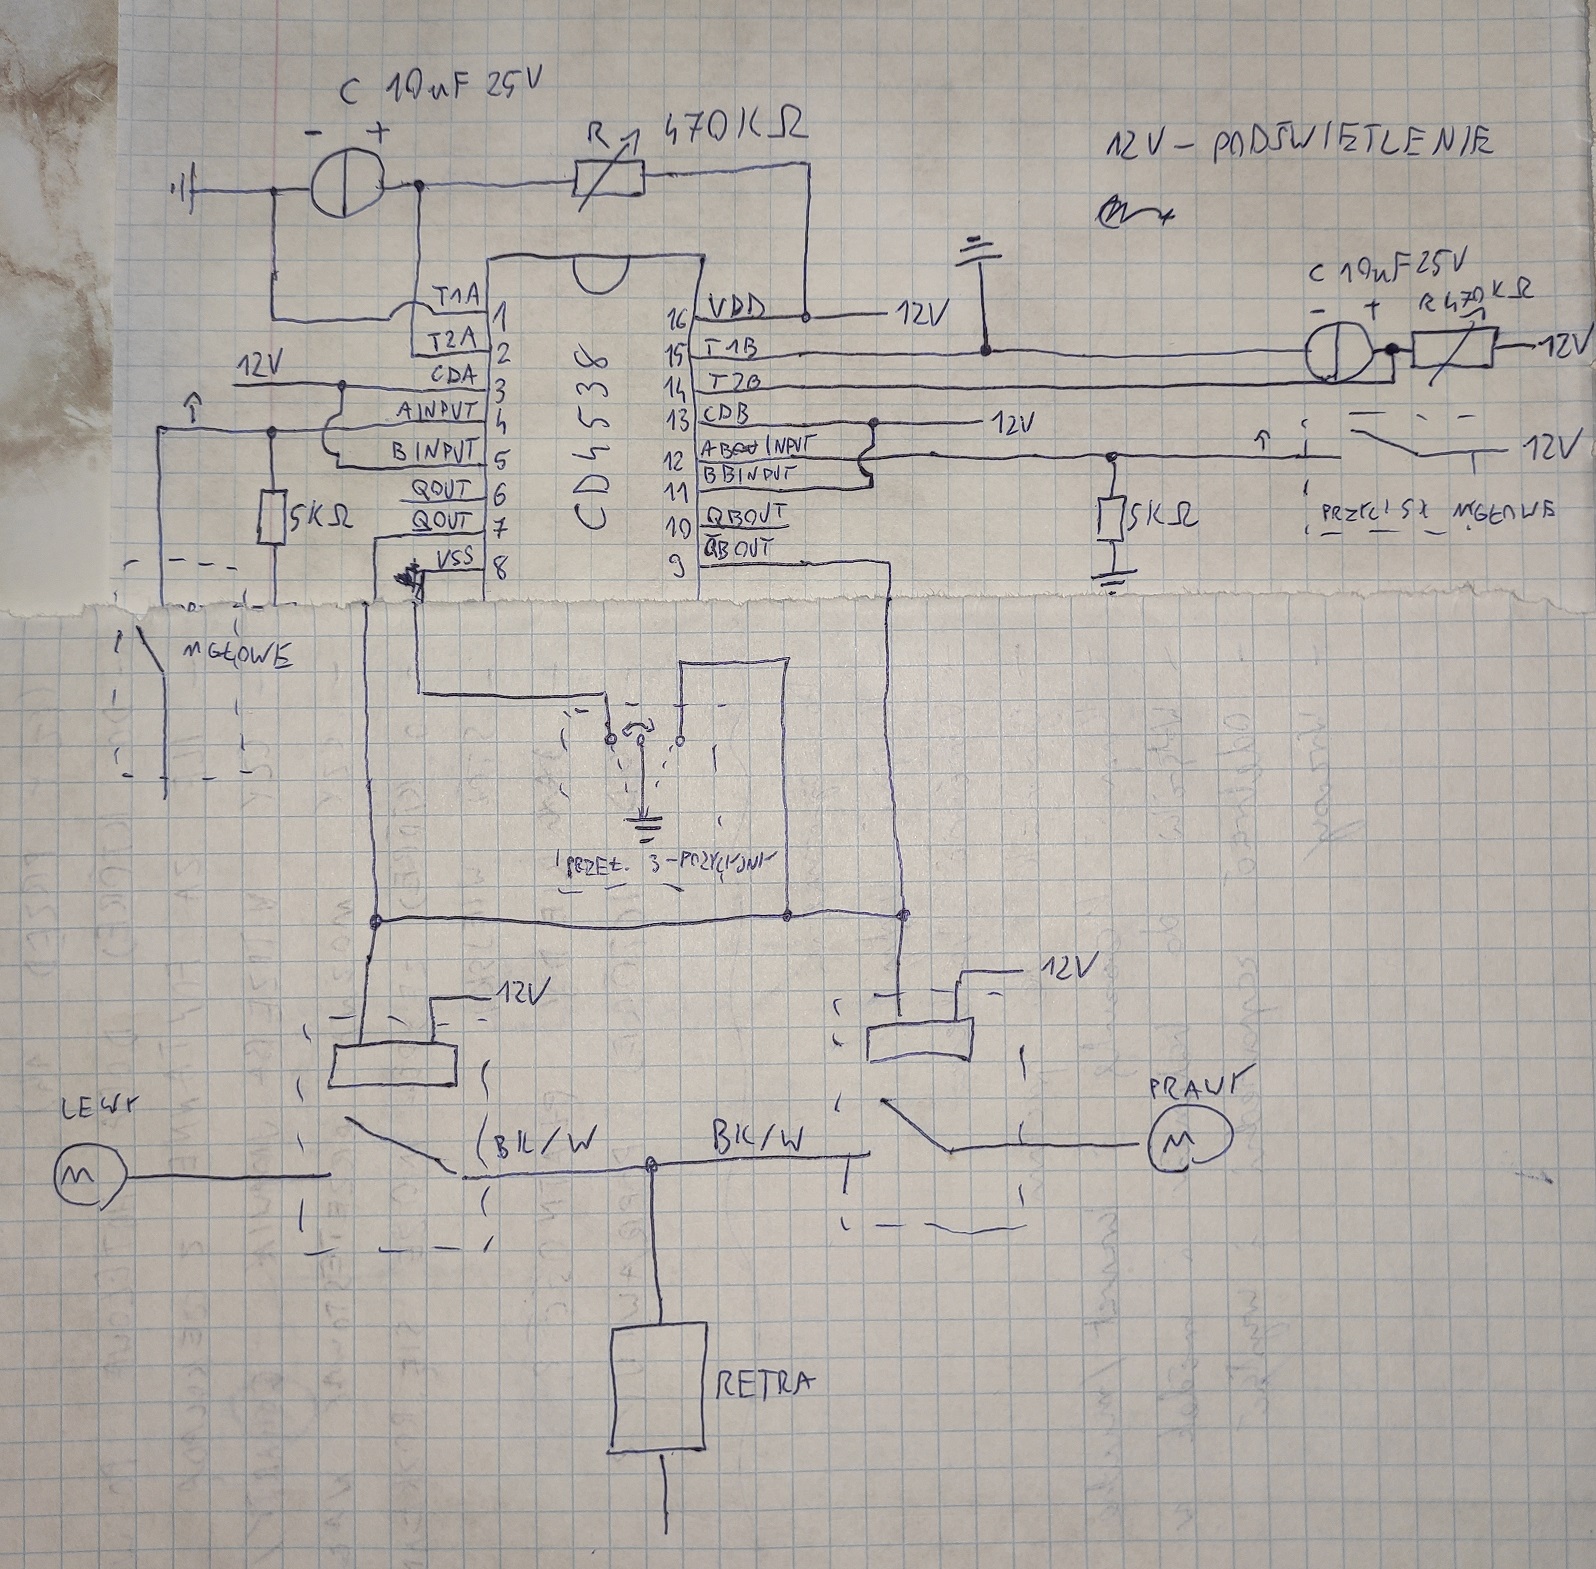 C 10uF 25V
- +
R 470KΩ
12V - PODŚWIETLENIE
C 10uF 25V
- + R 470KΩ
T1A 1
16 VDD 12V
T2A 2
15 T1B
12V
12V CDA 3
14 T2B
AINPUT 4
13 CDB 12V
B INPUT 5
12 AB INPUT
12V
11 BBINPUT
QOUT 6
10 QBOUT
QOUT 7
9 Q̅BOUT
VSS 8
CD4538
5KΩ
5KΩ
PRZYCISK MGŁOWE
MGŁOWE
PRZEŁ. 3-POZYCYJNY
12V
12V
LEWY
PRAWY
M
BK/W
BK/W
M
RETRA